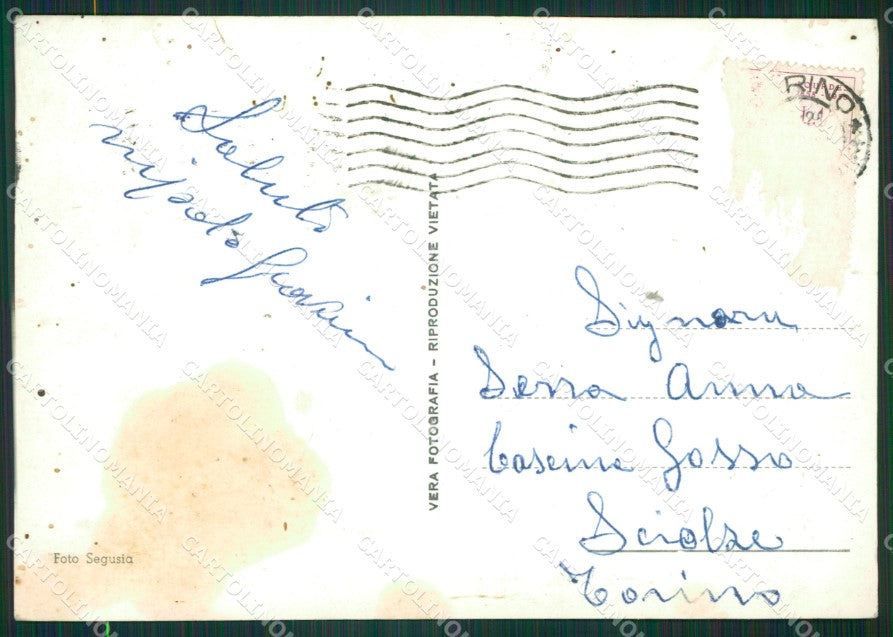 Saluti
nipote Graziin
VERA FOTOGRAFIA - RIPRODUZIONE VIETATA
RINO
Signora
Serra Anna
Cascina Gosso
Sciolze
Torino
Foto Segusia
CARTOLINOMANIA